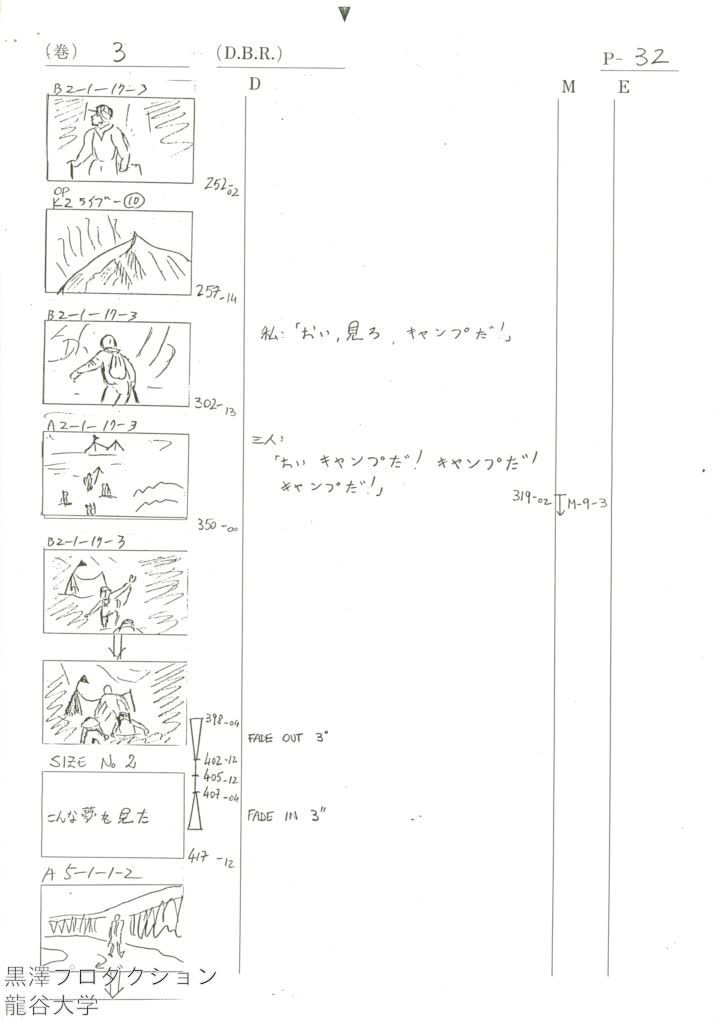 (巻) 3 (D.B.R.) P- 32
D M E
B2-1-17-3
252-02
OP
K2ライブ-⑩
257-14
B2-1-17-3
私:「おい,見ろ,キャンプだ!」
302-13
A2-1-17-3
三人:
「おいキャンプだ! キャンプだ!
キャンプだ!」
319-02 M-9-3
350-00
B2-1-17-3
398-04
FADE OUT 3"
402-12
SIZE No 2
405-12
407-04
こんな夢を見た
FADE IN 3"
417-12
A5-1-1-2
黒澤プロダクション
龍谷大学